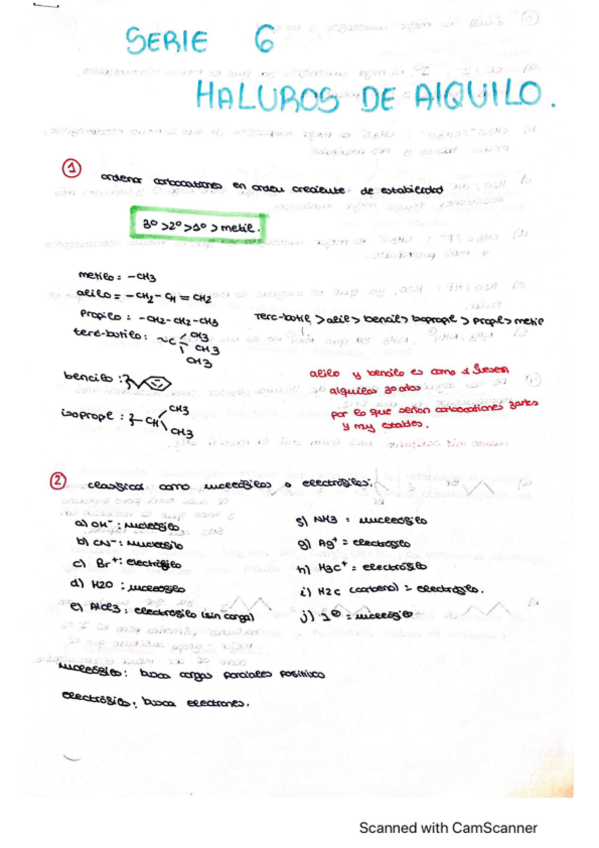 SERIE 6
HALUROS DE ALQUILO.
① ordenar carbocationes en orden creciente de estabilidad
3º > 2º > 1º > metil.
metilo: -CH3
alilo = -CH2-CH=CH2
Propilo: -CH2-CH2-CH3
terc-butilo: -C CH3 CH3 CH3
Terc-butil > alil > bencil > isopropil > propil > metil
bencilo:
isopropil: -CH CH3 CH3
alilo y bencilo es como si fuesen
alquilos 3arios
por lo que serían carbocationes 3arios
y muy estables.
② clasificar como nucleófilos o electrófilos:
a) OH⁻: nucleófilo
b) CN⁻: nucleófilo
c) Br⁺: electrófilo
d) H2O: nucleófilo
e) AlCl3: electrófilo (sin carga)
f) NH3 = nucleófilo
g) Ag⁺ = electrófilo
h) H3C⁺ = electrófilo
i) H2C (carbeno) = electrófilo.
j) I⁻ = nucleófilo
nucleófilo: busca cargas parciales positivas
electrófilo: busca electrones.
Scanned with CamScanner